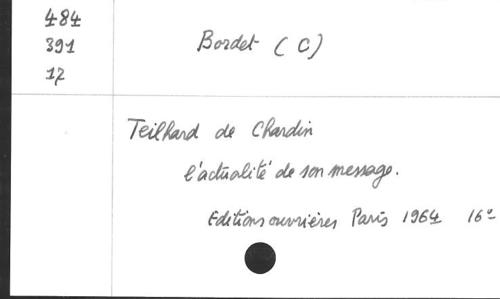 484
391
12
Bordet (C)
Teilhard de Chardin
l'actualité de son message.
Editions ouvrières Paris 1964 16°